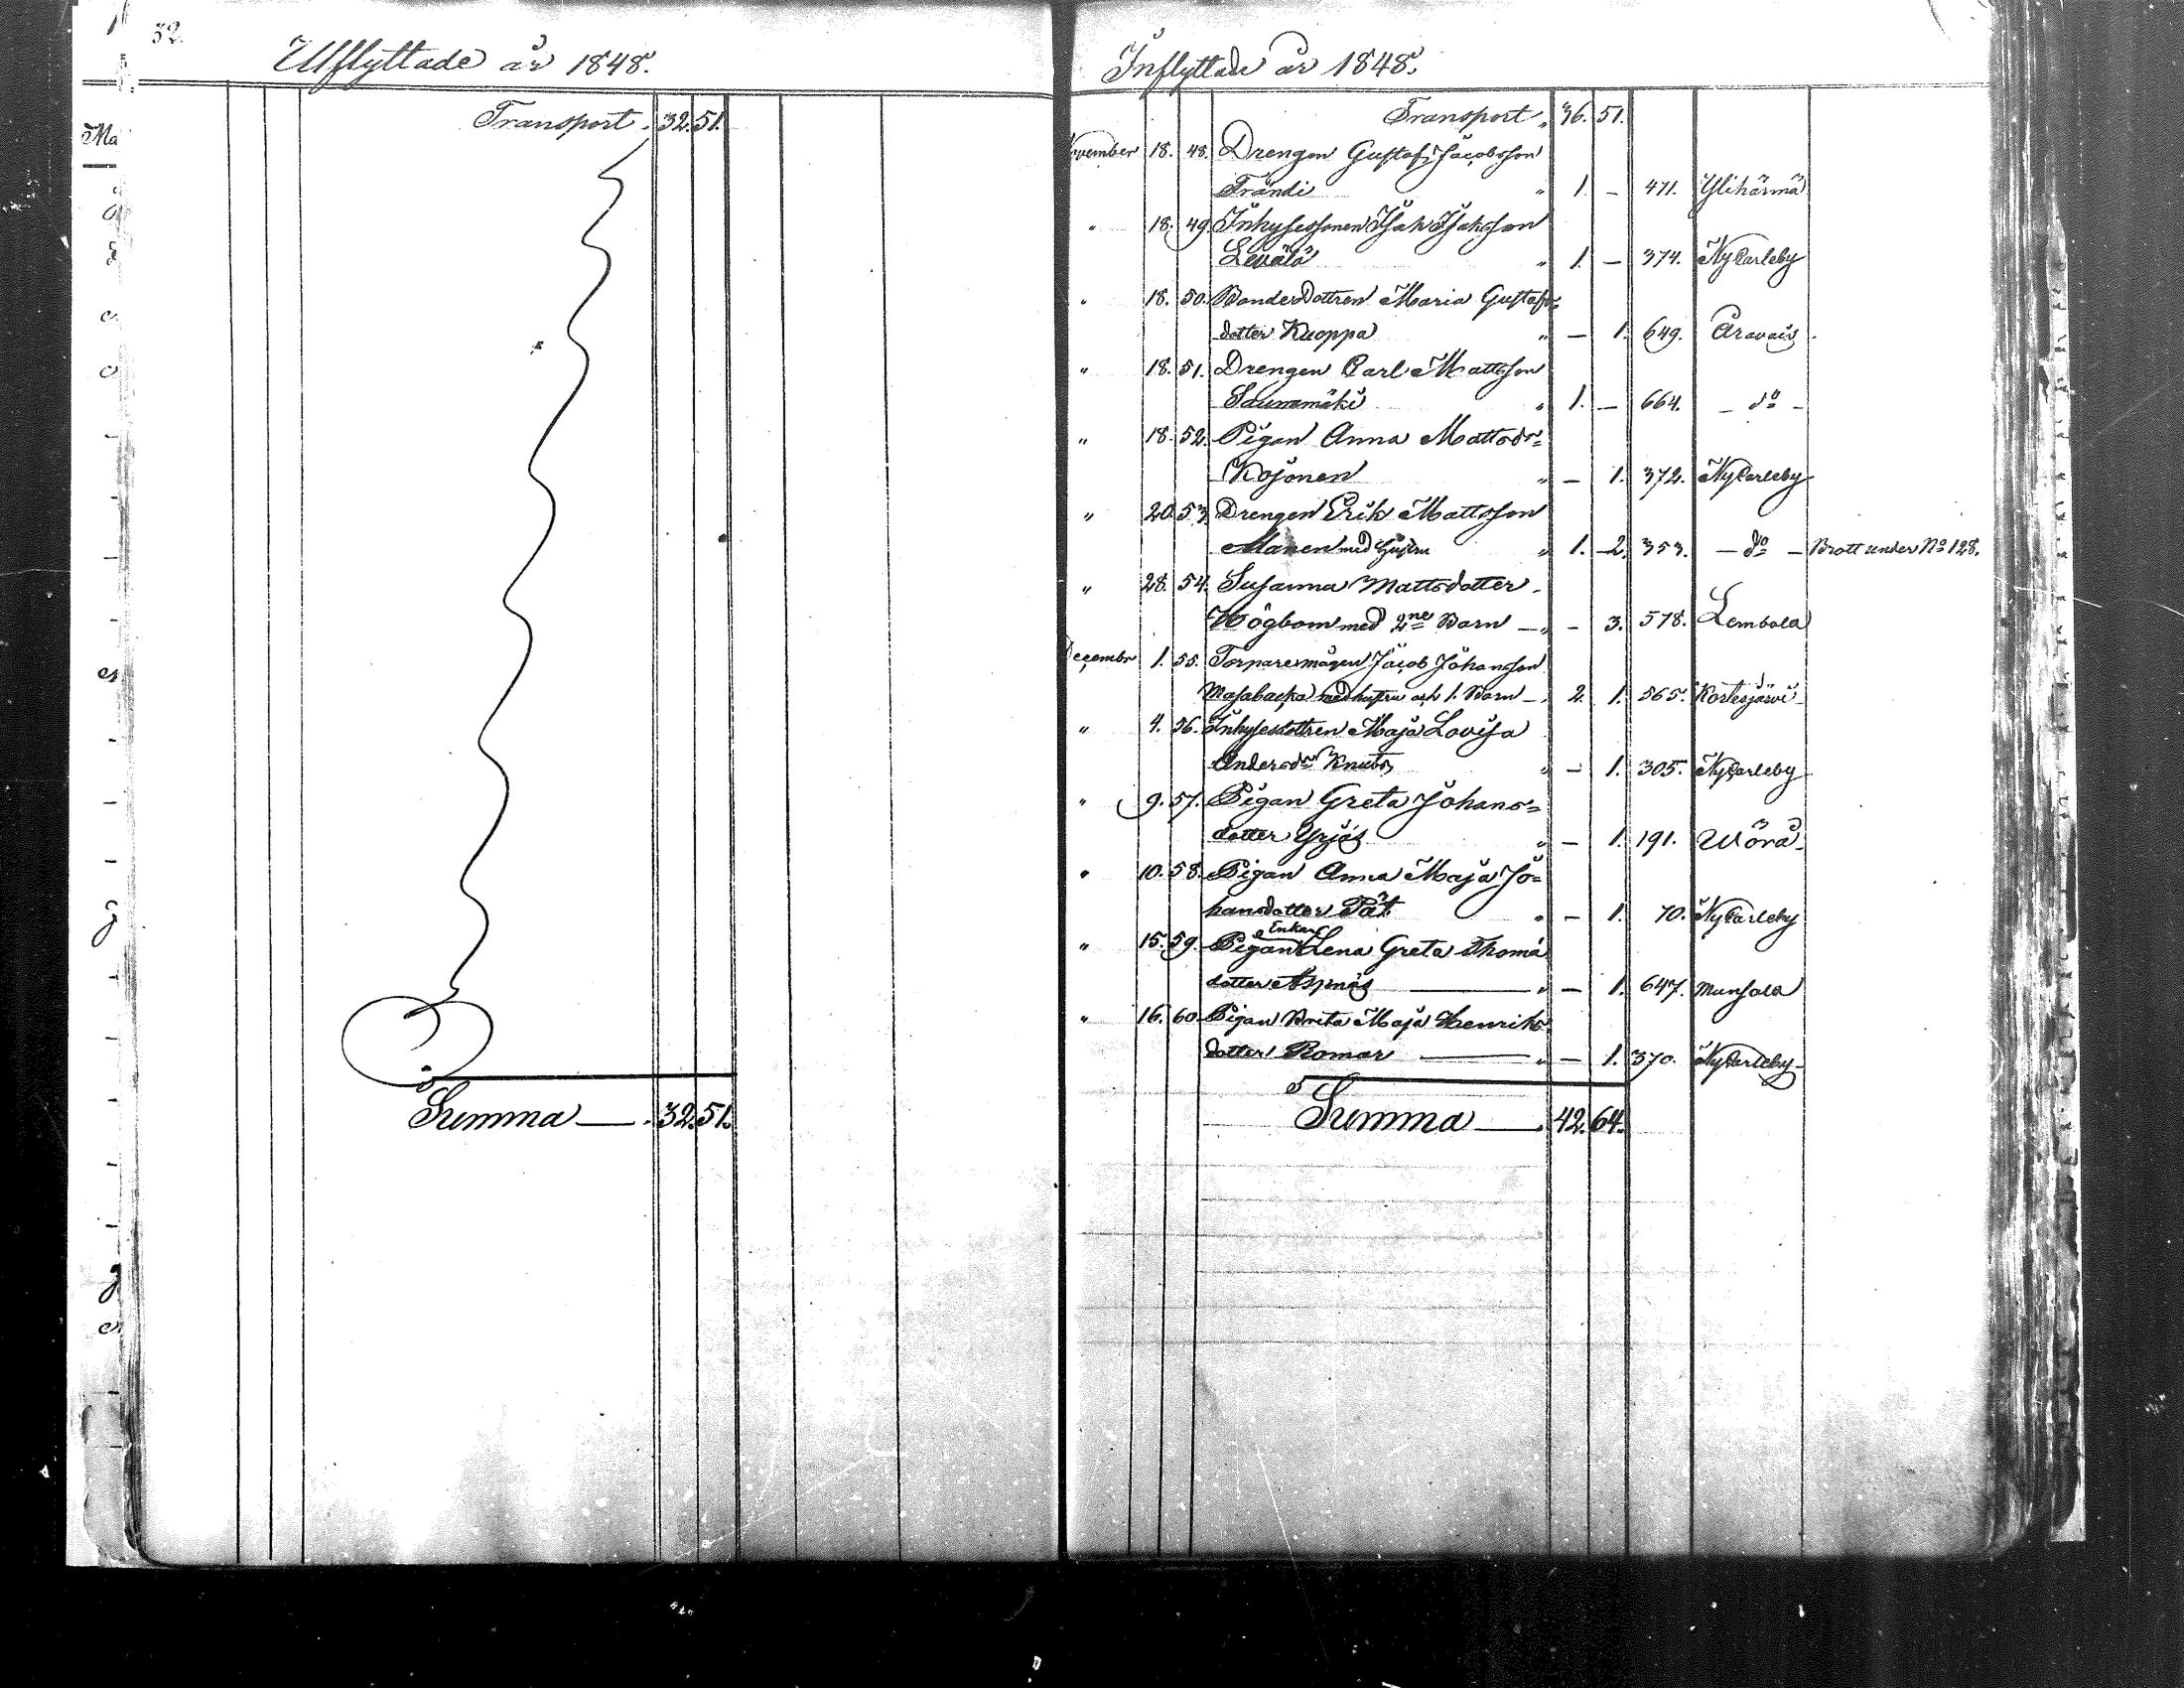 32.
Utflyttade år 1848.
Transport . 32. 51.
Summa — . 32. 51.
Inflyttade år 1848.
Transport „ 36. 51.
November 18. 48. Drengen Gustaf Jacobsson
Trändi „ 1. – 471. Ylihärmä
„ 18. 49. Inhysessonen Isak Isaksson
Levälä „ 1. – 374. NyCarleby
„ 18. 50. Bondedottren Maria Gustafs=
dotter Kuoppa „ – 1. 649. Oravais
„ 18. 51. Drengen Carl Mattsson
Saunamäki „ 1. – 664. – do –
„ 18. 52. Pigan Anna Mattsdr=
Kojonen „ – 1. 372. NyCarleby
„ 20. 53. Drengen Erik Mattsson
Manen med hustru „ 1. 2. 353. – do – Brott under No 128.
„ 28. 54. Susanna Mattsdotter
Högbom med 2ne Barn – „ – 3. 578. Lembola
December 1. 55. Torparemågen Jacob Johansson
Masabacka med hustru och 1. Barn – „ 2. 1. 565. Kortesjärvi
„ 4. 56. Inhysesdottren Maja Lovisa
Andersdr Knuts „ – 1. 305. NyCarleby
„ 9. 57. Pigan Greta Johans=
dotter Yrjäs „ – 1. 191. Wörå
„ 10. 58. Pigan Anna Maja Jo=
hansdotter Pät „ – 1. 70. NyCarleby
Enkan
„ 15. 59. Pigan Lena Greta Thoma
dotter Aspnäs — „ – 1. 647. Munsala
„ 16. 60. Pigan Brita Maja Henriks
dotter Romar — „ – 1. 370. NyCarleby
Summa — . 42. 64.